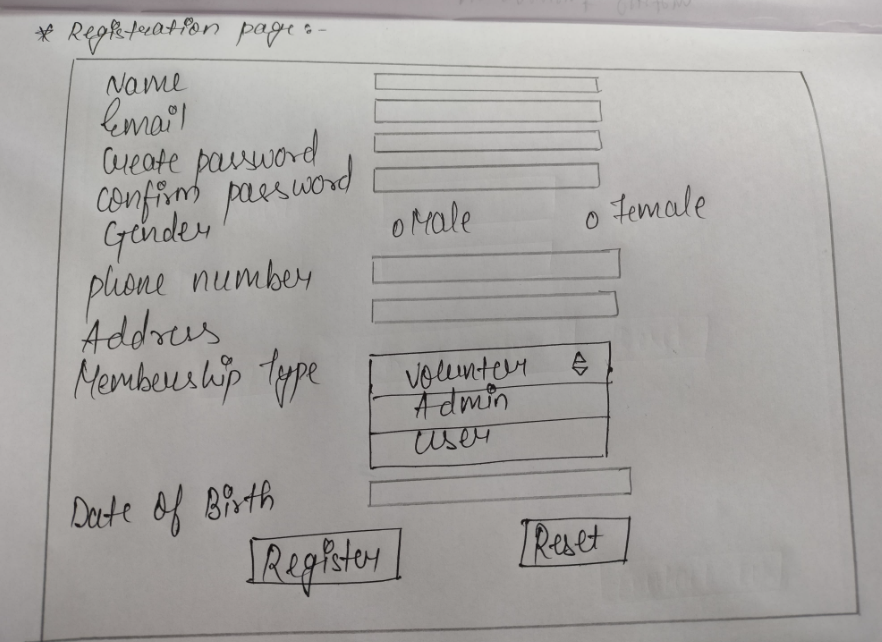 * Registration page :-
Name
Email
Create password
Confirm password
Gender o Male o Female
phone number
Address
Membership type Volunteer
Admin
User
Date of Birth
Register Reset